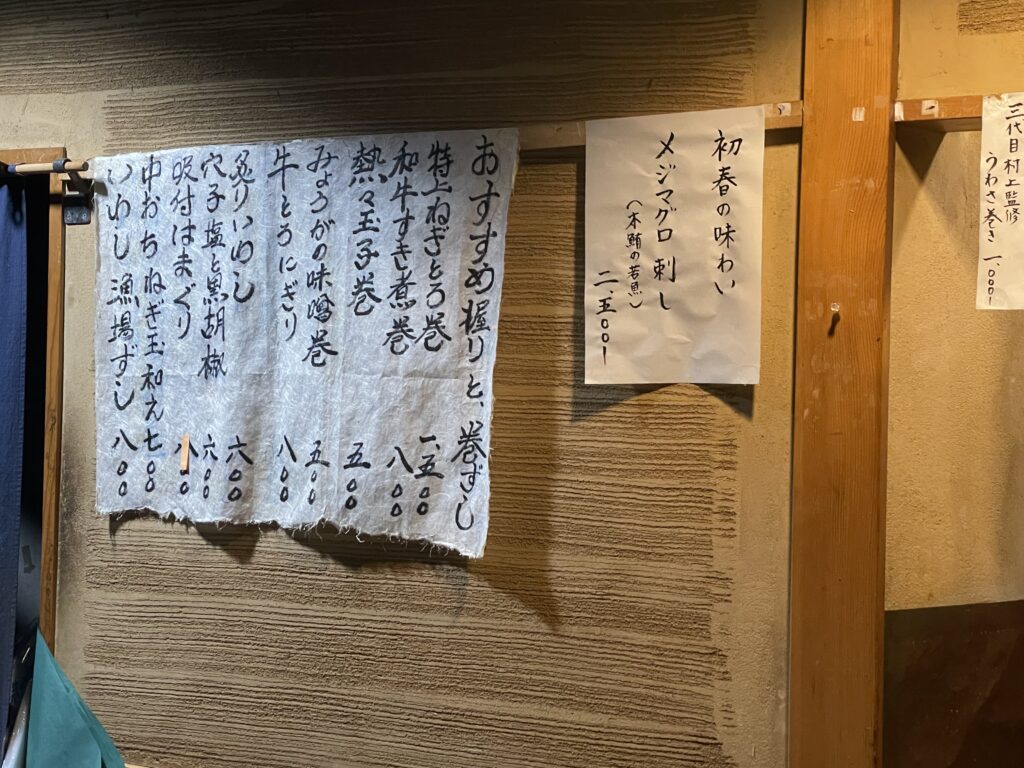 三代目 村上監修
うわさ巻き 一、〇〇〇ー
初春の味わい
メジマグロ刺し
(本鮪の若魚)
二、五〇〇ー
おすすめ握りと、巻ずし
特上ねぎとろ巻 一、五〇〇
和牛すき煮巻 八〇〇
熱々玉子巻 五〇〇
みょうがの味噌巻 五〇〇
牛とろにぎり 八〇〇
炙りいわし 六〇〇
穴子塩と黒胡椒 六〇〇
吸付はまぐり 八〇〇
中おちねぎ玉和え 七〇〇
いわし漁場ずし 八〇〇